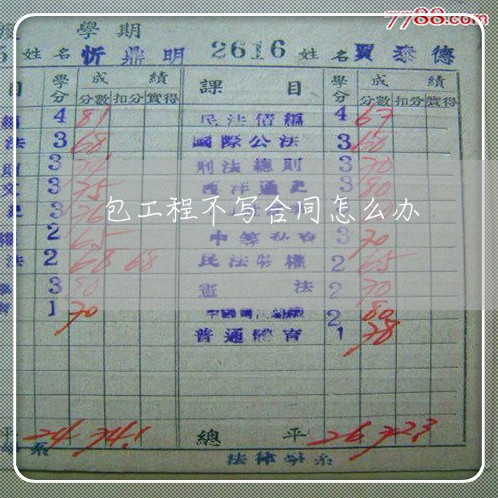 7788.com
學期
姓名 忻鼎明 2616 姓名 賈泰德
目 學分 成績 課目 學分 成績
分數 扣分 實得 分數 扣分 實得
4 81 民法債編 4 67
法 3 68 國際公法 3 60
3 刑法總則 3 70
3 75 西洋通史 3 80
包工程不写合同怎么办
2 65 3 70
法 2 68 68 民法物權 2 65
3 80 憲法 2 70
1 70 2 80
普通體育 1 78
平 24 74.1 總平 26 72.3
系 法律學系